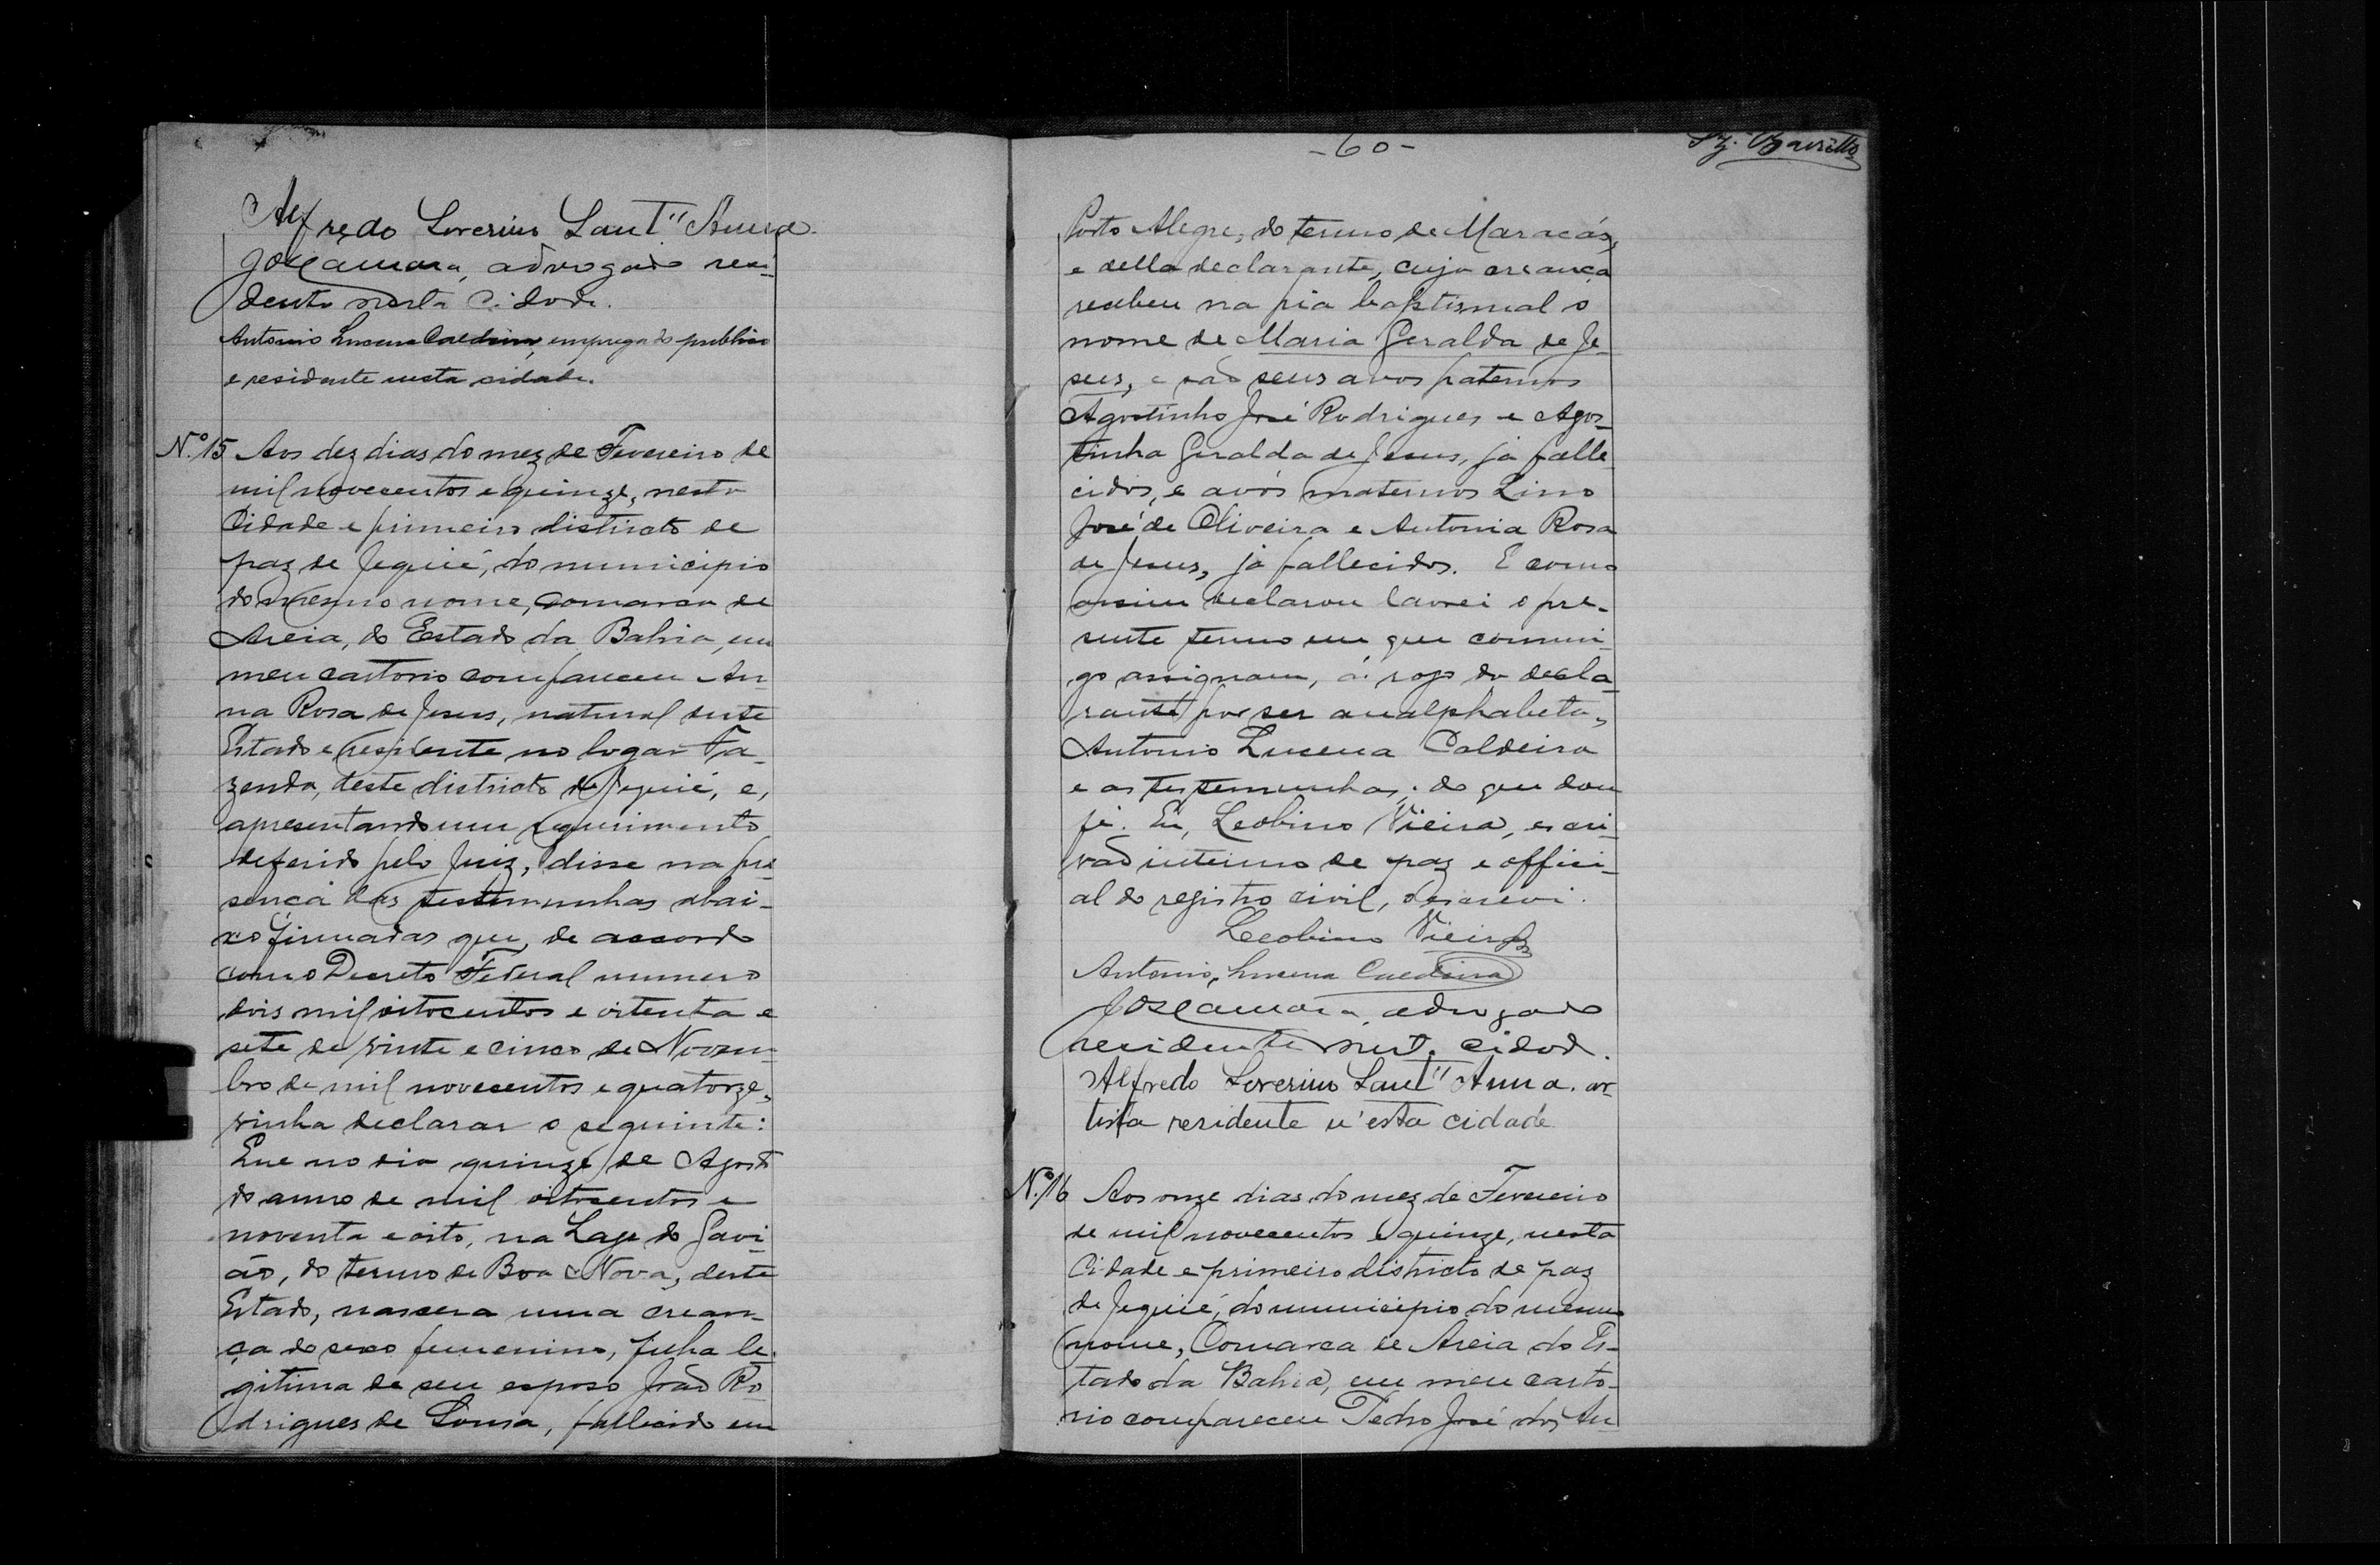 Alfredo Severino Sant"Anna.
JosCamara, advogado resi-
dente nesta Cidade.
Antonio Lucena Caldeira, empregado publico
e residente nesta cidade.
Nº 15 Aos dez dias do mez de Fevereiro de
mil novecentos e quinze, nesta
Cidade e primeiro districto de
paz de Jequié, do municipio
do mesmo nome, comarca de
Areia, do Estado da Bahia, em
meu cartorio compareceu An-
na Rosa de Jesus, natural deste
Estado e residente no logar Fa-
zenda, deste districto de Jequié, e,
apresentando um requerimento
deferido pelo Juiz, disse na pre-
sença das testemunhas abai-
xo firmadas que, de accordo
com o Decreto Federal numero
dois mil oitocentos e oitenta e
sete de vinte e cinco de Novem-
bro de mil novecentos e quatorze,
vinha declarar o seguinte:
Que no dia quinze de Agosto
do anno de mil oitocentos e
noventa e oito, na Lage do Gavi-
ão, do termo de Boa Nova, deste
Estado, nascera uma crean-
ça do sexo femenino, filha le-
gitima de seu esposo João Ro-
drigues de Sousa, fallecido em
-60-
Barretto
Porto Alegre, do termo de Maracás,
e della declarante, cuja creança
recebeu na pia baptismal o
nome de Maria Geralda de Je-
sus, e são seus avos paternos
Agostinho José Rodrigues e Agos-
tinha Geralda de Jesus, já falle-
cidos, e avós maternos Lino
José de Oliveira e Antonia Rosa
de Jesus, já fallecidos. E como
assim declarou lavrei o pre-
sente termo em que commi-
go assignam, á rogo da decla-
rante por ser analphabeta,
Antonio Lucena Caldeira
e as testemunhas; do que dou
fé. Eu, Leobino Vieira, escri-
vão interino de paz e offici-
al do registro civil, o escrevi.
Leobino Vieira
Antonio Lucena Caldeira
JosCamara, advogado
residente nest. cidad.
Alfredo Severino Sant"Anna. ar-
tista residente n'esta cidade
Nº 16 Aos onze dias do mez de Fevereiro
de mil novecentos e quinze, nesta
Cidade e primeiro districto de paz
de Jequié, do municipio do mesmo
nome, Comarca de Areia do Es-
tado da Bahia, em meu carto-
rio compareceu Pedro José dos An-